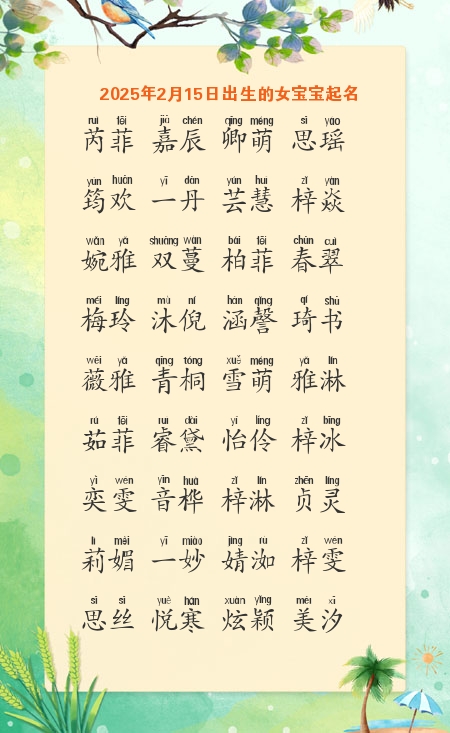 2025年2月15日出生的女宝宝起名
ruì fēi jiā chén qīng méng sī yáo
芮菲 嘉辰 卿萌 思瑶
yún huān yī dān yún huì zǐ yàn
筠欢 一丹 芸慧 梓焱
wǎn yǎ shuāng wàn bǎi fēi chūn cuì
婉雅 双蔓 柏菲 春翠
méi líng mù ní hán qìng qí shū
梅玲 沐倪 涵謦 琦书
wēi yǎ qīng tóng xuě méng yǎ lín
薇雅 青桐 雪萌 雅淋
rú fēi ruì dài yí líng zǐ bīng
茹菲 睿黛 怡伶 梓冰
yì wén yīn huà zǐ lín zhēn líng
奕雯 音桦 梓淋 贞灵
lì mèi yī miào jìng rú zǐ wén
莉媚 一妙 婧洳 梓雯
sī sī yuè hán xuàn yǐng měi xī
思丝 悦寒 炫颖 美汐